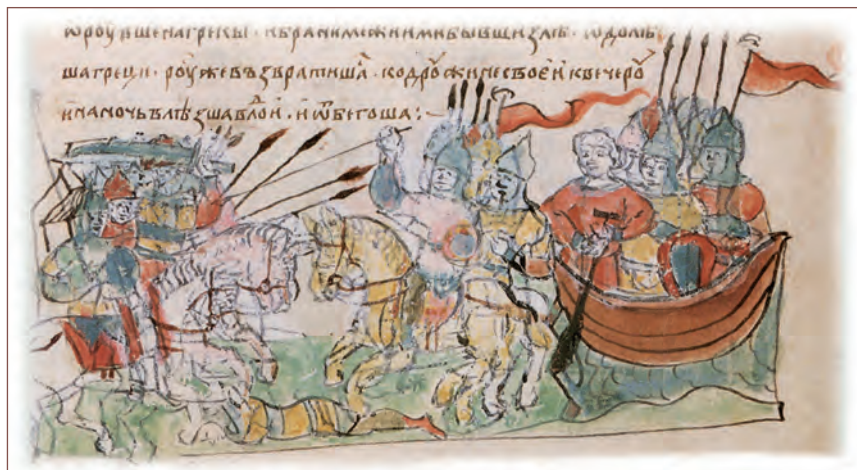 на грекы · и брани межи ими бывши злѣ · ѡдолѣ
ша греци · роу же възвратишаⷭ · ко дроужине своеи к вечероу
и на ночь влѣзша в лоⷣи · и ѿбегоша :~